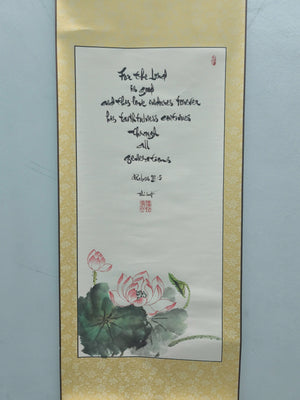 For the Lord
is good
and his love endures forever
his faithfulness continues
through
all
generations